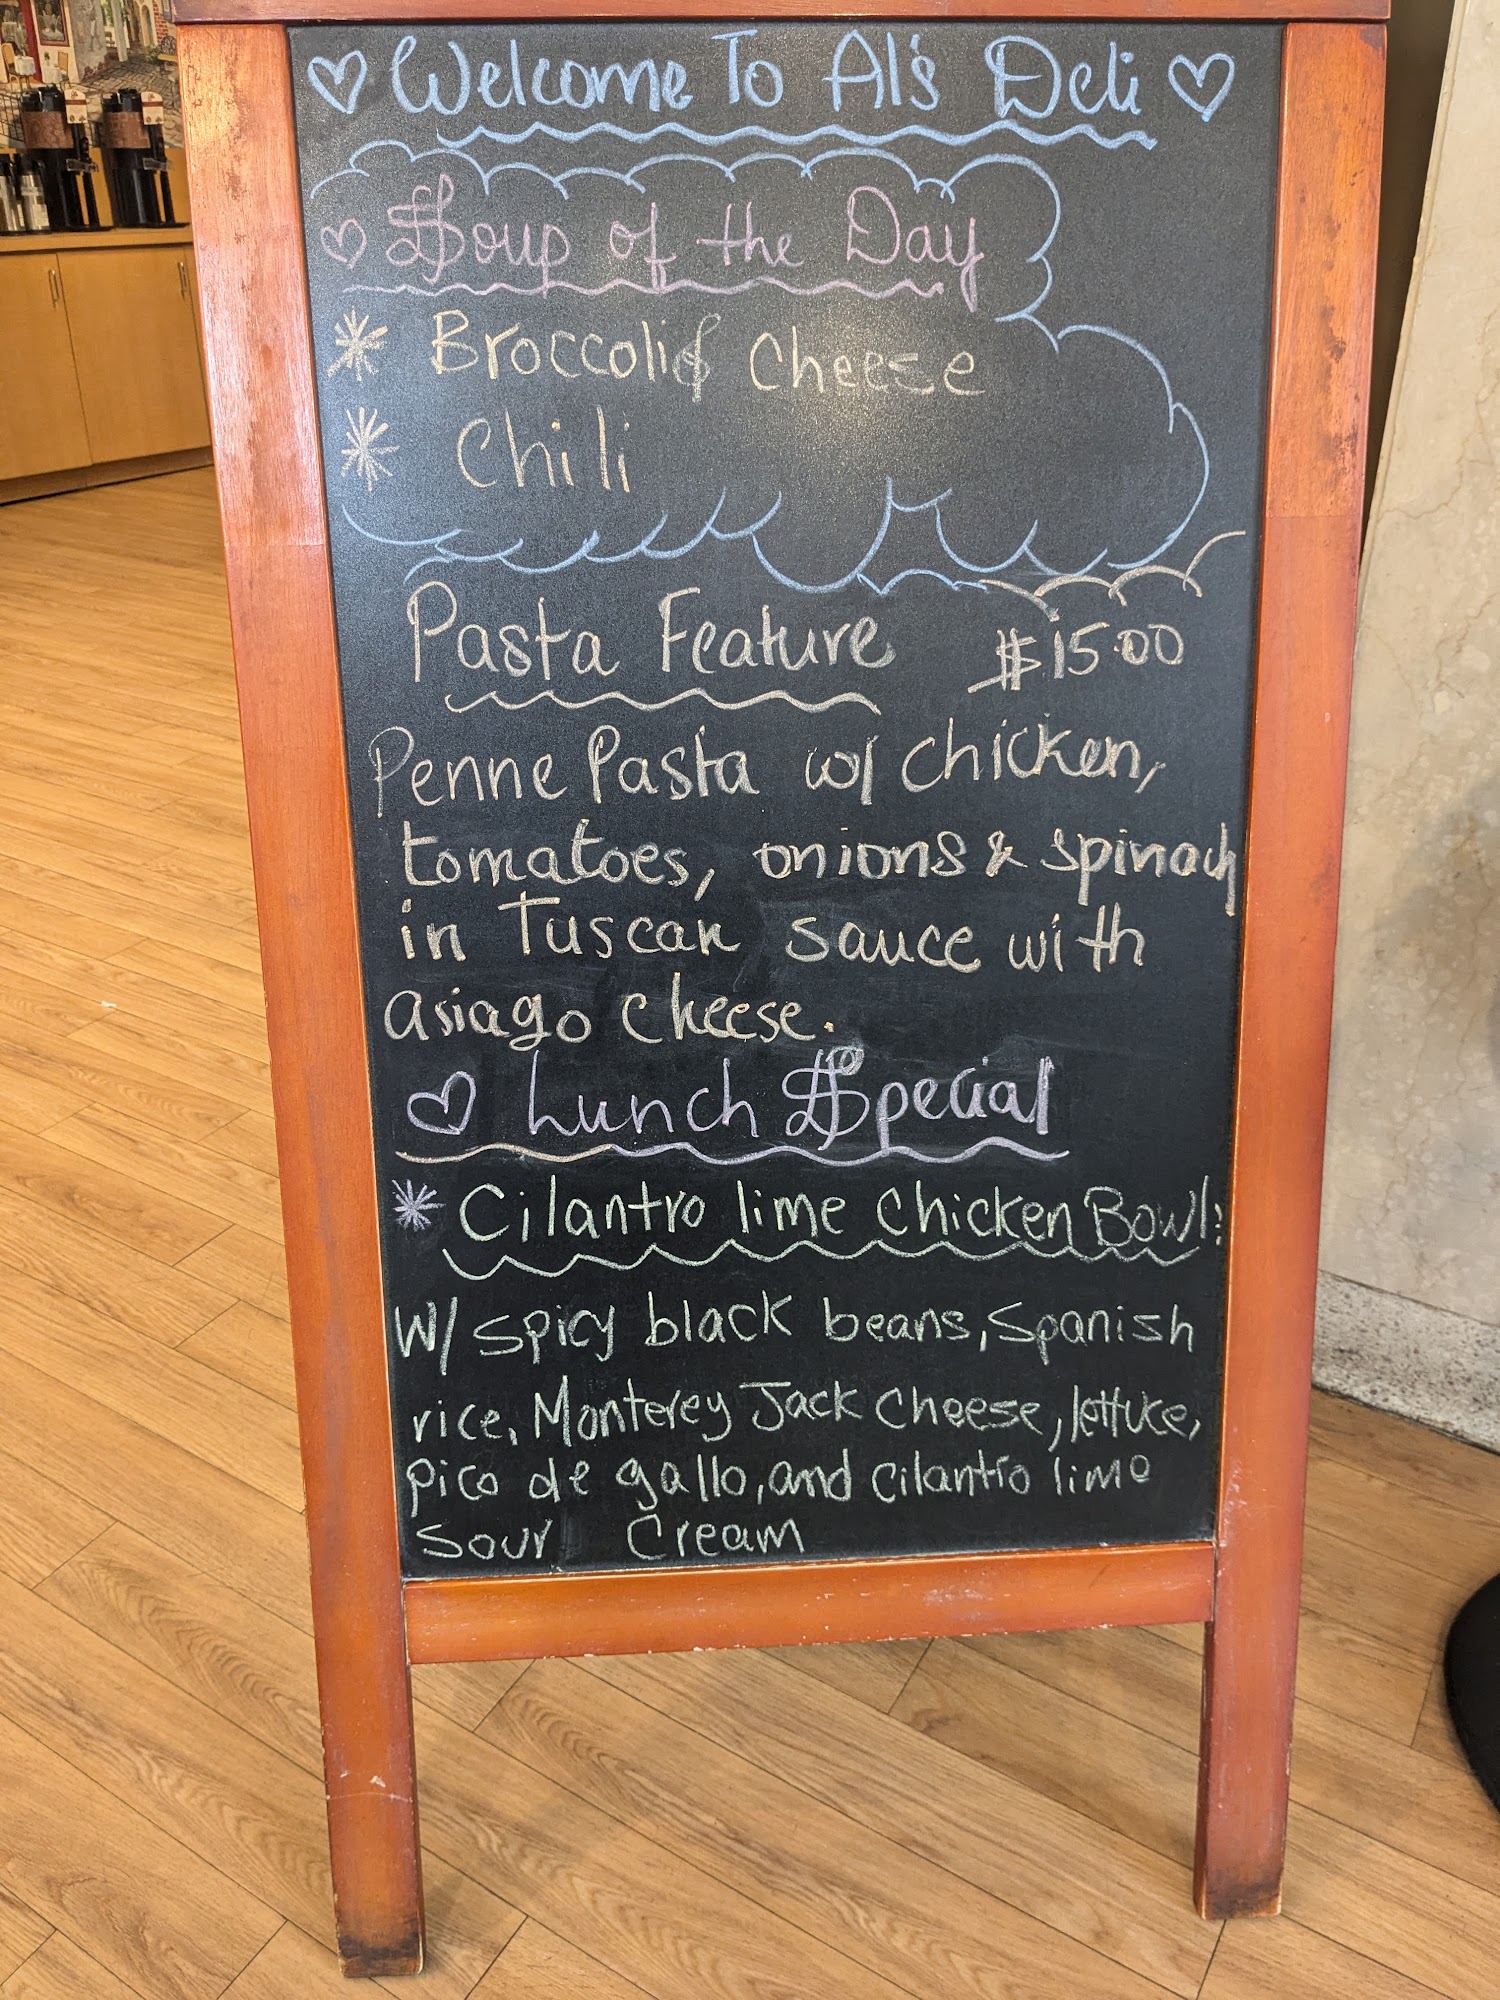 Welcome To Al's Deli
Soup of the Day
Broccoli & Cheese
Chili
Pasta Feature $15.00
Penne Pasta w/ chicken,
tomatoes, onions & spinach
in Tuscan sauce with
asiago cheese.
Lunch Special
Cilantro lime Chicken Bowl:
W/ spicy black beans, Spanish
rice, Monterey Jack Cheese, lettuce,
pico de gallo, and cilantro lime
sour cream